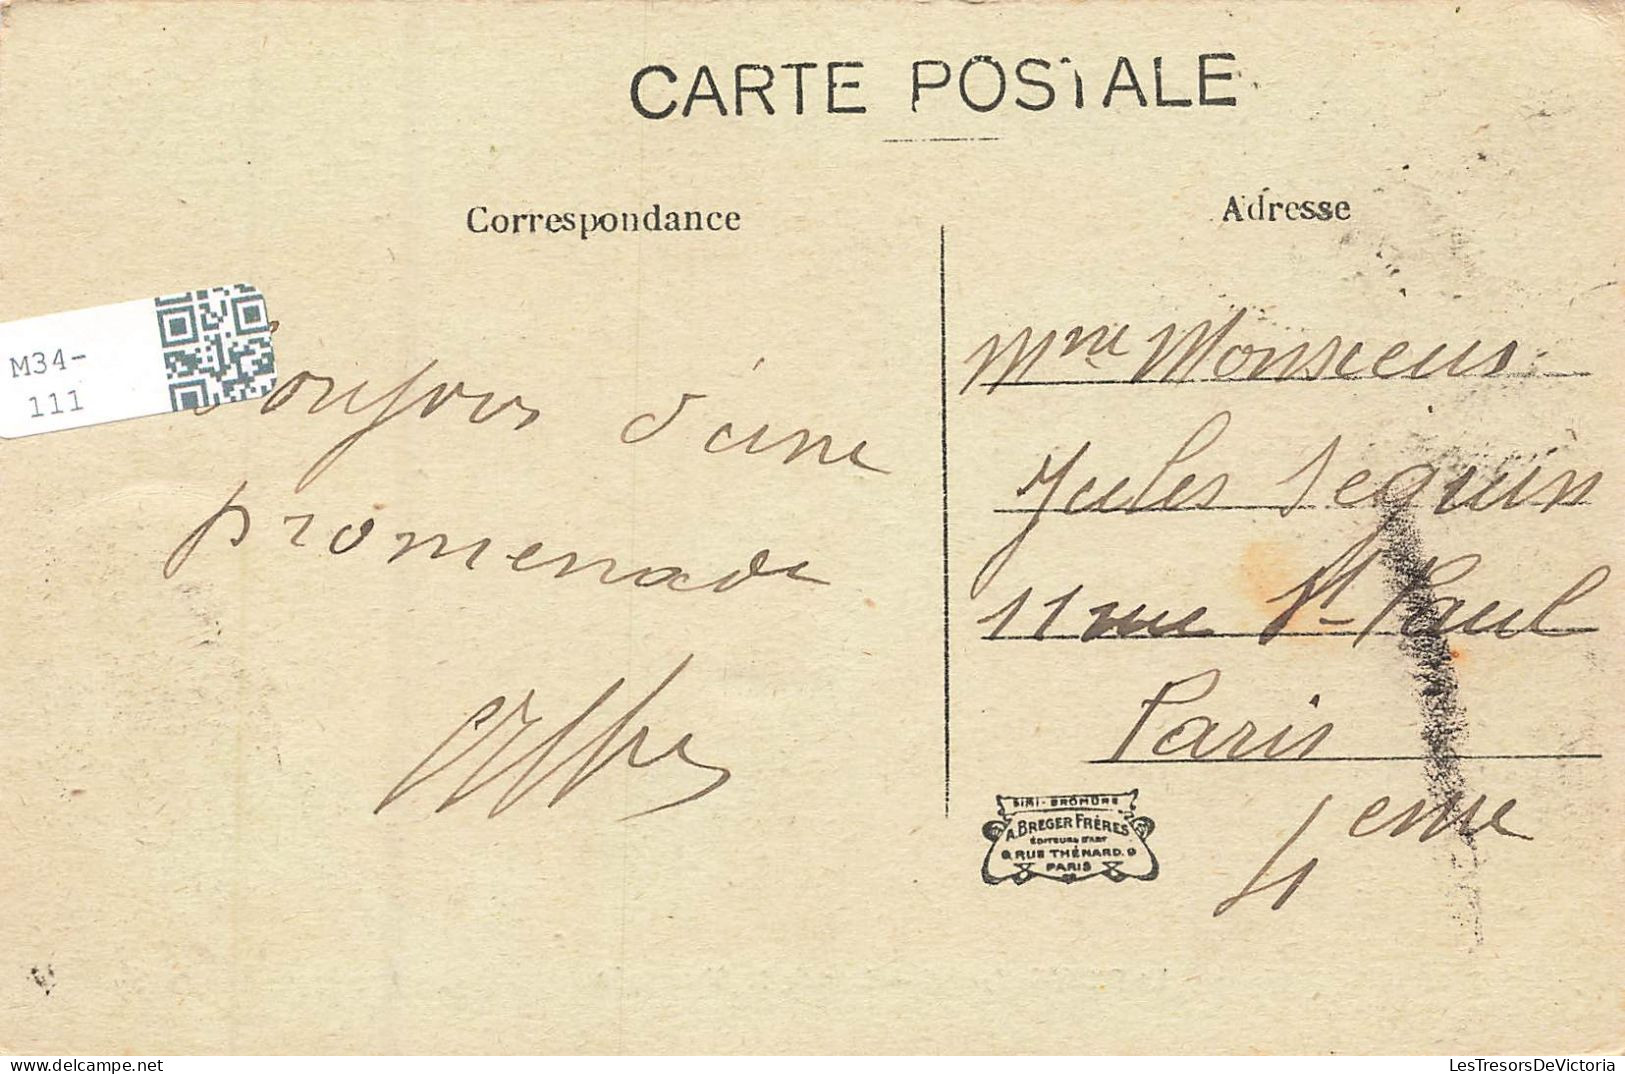 CARTE POSTALE
Correspondance
Adresse
M34-
111
Bonjour d'une
promenade
Mme Monsieur
Jules Seguin
11 rue St Paul
Paris
4eme
SIMI-BROMURE
A. BREGER FRÈRES
ÉDITEURS D'ART
9 RUE THÉNARD. 9
PARIS
LesTresorsDeVictoria